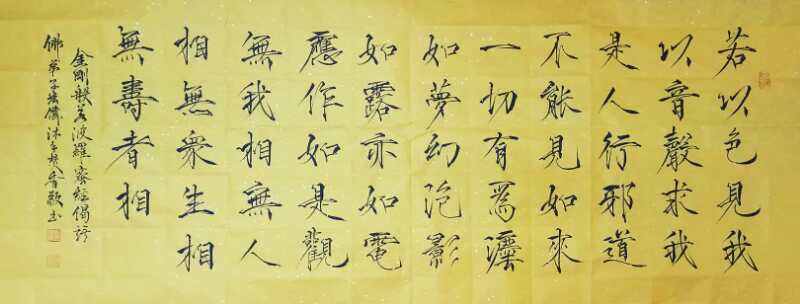 若以色見我
以音聲求我
是人行邪道
不能見如來
一切有爲灋
如夢幻泡影
如露亦如電
應作如是觀
無我相無人
相無眾生相
無壽者相
金剛般若波羅蜜經偈語
佛弟子沐手焚香敬書